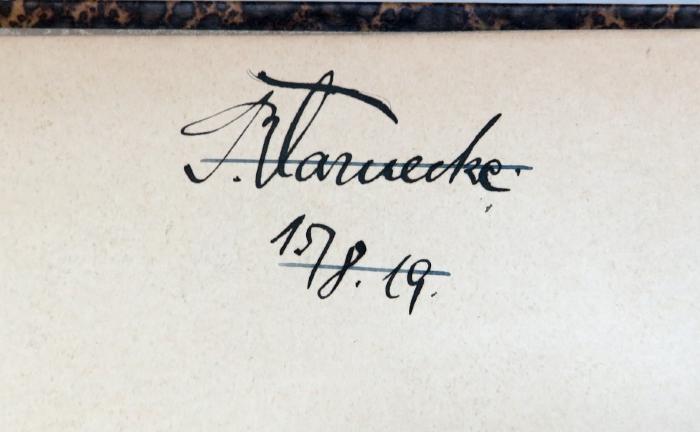 P. Warnecke.
15/8. 19.